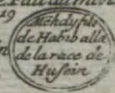 19
Mehdy fils
de Habib alla
de la race de
Husein